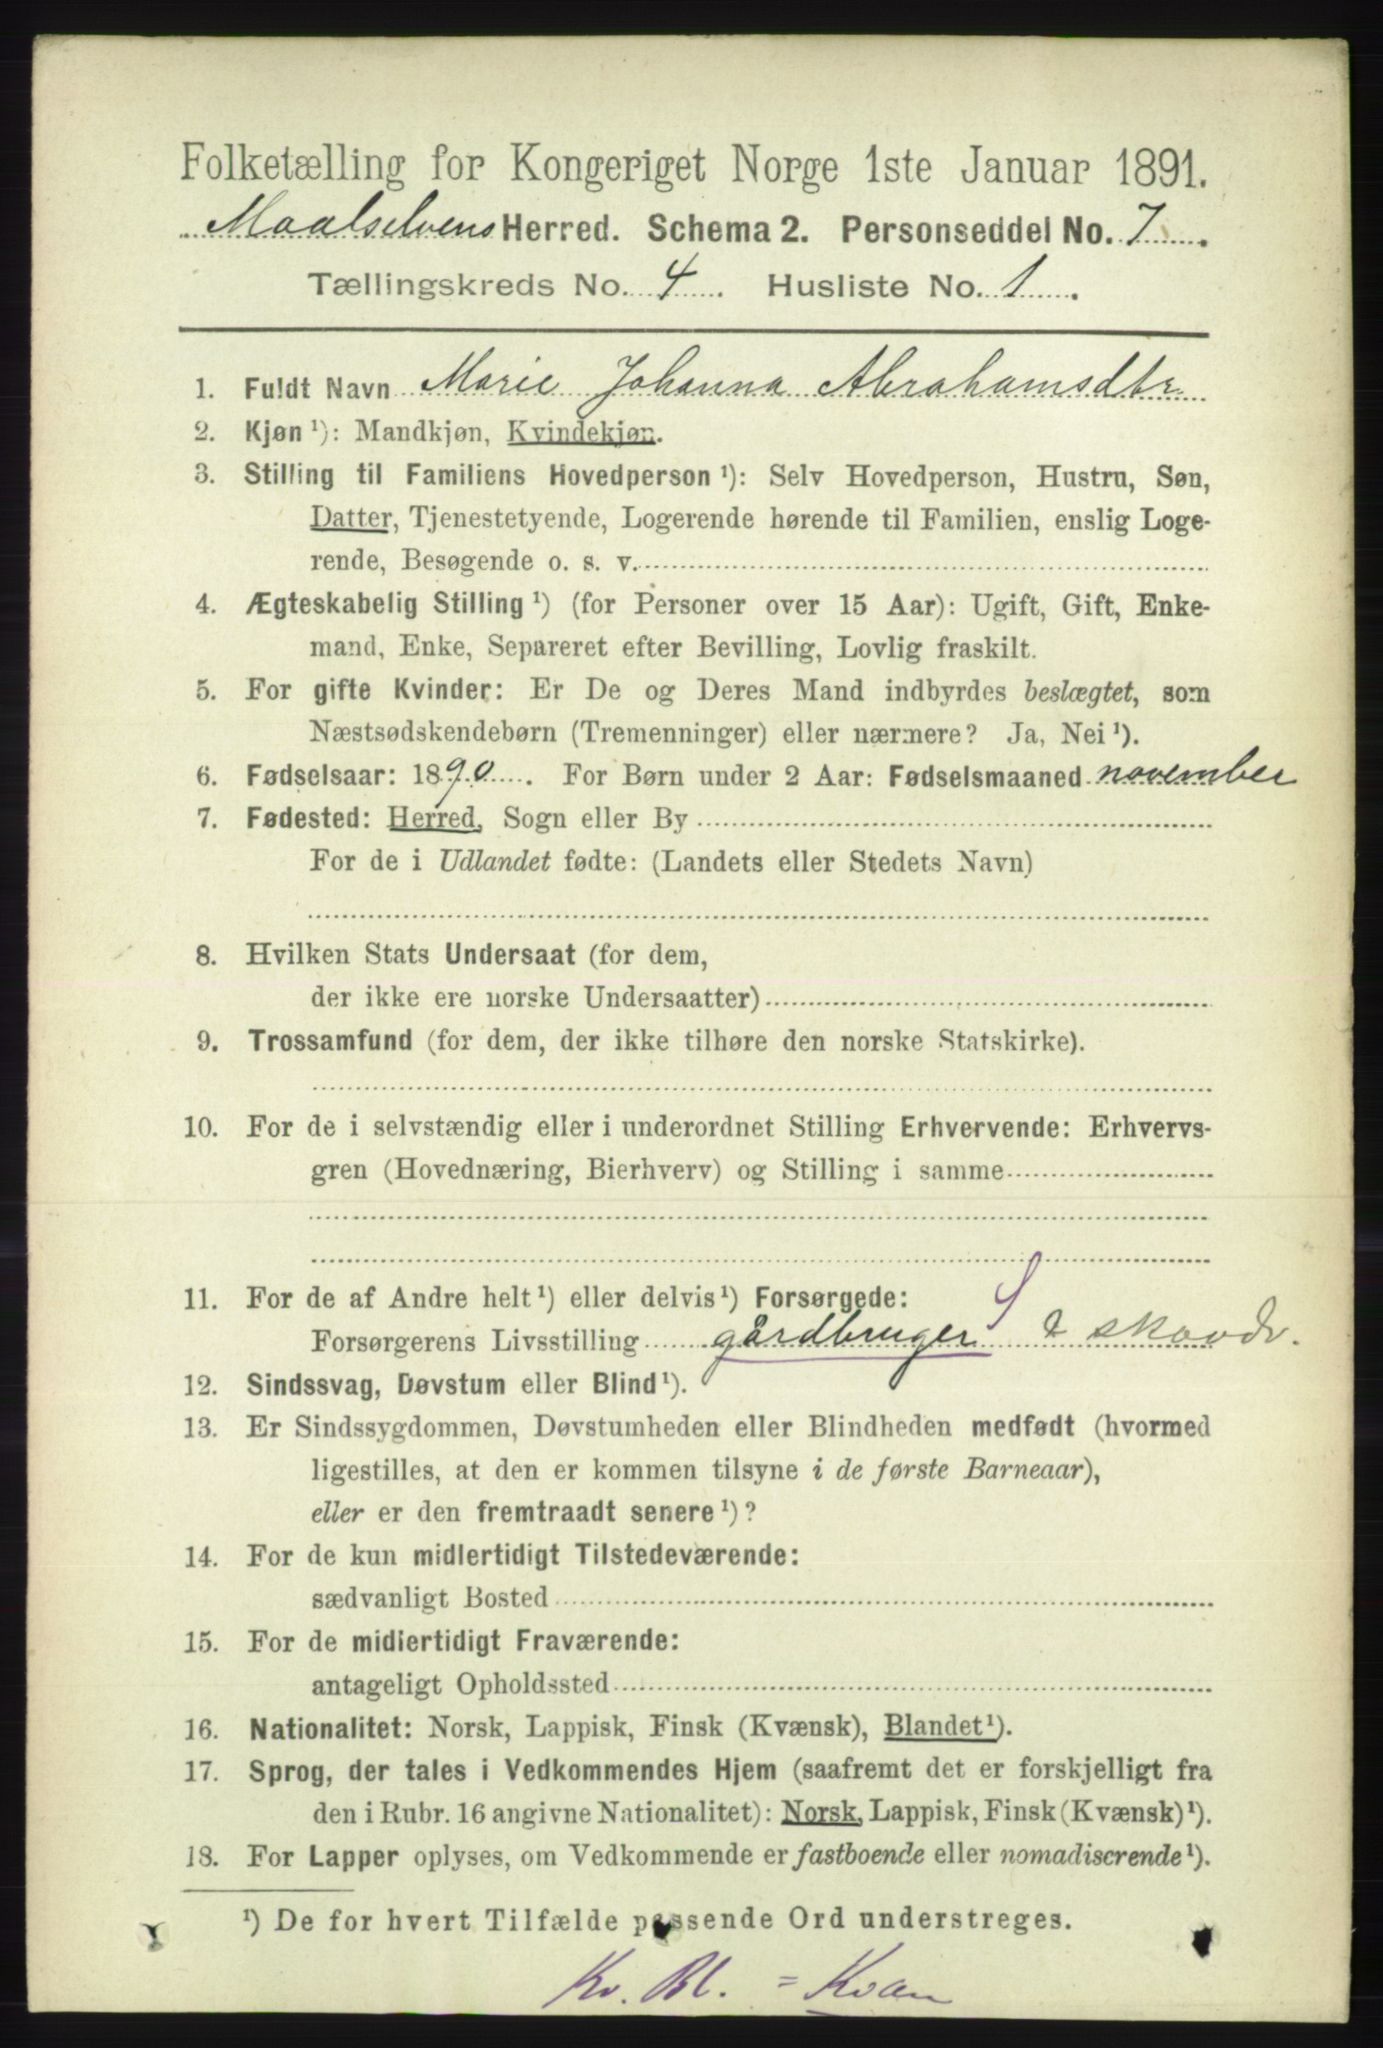 Folketælling for Kongeriget Norge 1ste Januar 1891.
Maalselvens Herred. Schema 2. Personseddel No. 7
Tællingskreds No. 4 Husliste No. 1
1. Fuldt Navn Marie Johanna Abrahamsdtr
2. Kjøn ¹): Mandkjøn, Kvindekjøn.
3. Stilling til Familiens Hovedperson ¹): Selv Hovedperson, Hustru, Søn,
Datter, Tjenestetyende, Logerende hørende til Familien, enslig Loge-
rende, Besøgende o. s. v.
4. Ægteskabelig Stilling ¹) (for Personer over 15 Aar): Ugift, Gift, Enke-
mand, Enke, Separeret efter Bevilling, Lovlig fraskilt.
5. For gifte Kvinder: Er De og Deres Mand indbyrdes beslægtet, som
Næstsødskendebørn (Tremenninger) eller nærmere? Ja, Nei ¹).
6. Fødselsaar: 1890. For Børn under 2 Aar: Fødselsmaaned november
7. Fødested: Herred, Sogn eller By
For de i Udlandet fødte: (Landets eller Stedets Navn)
8. Hvilken Stats Undersaat (for dem,
der ikke ere norske Undersaatter)
9. Trossamfund (for dem, der ikke tilhøre den norske Statskirke).
10. For de i selvstændig eller i underordnet Stilling Erhvervende: Erhvervs-
gren (Hovednæring, Bierhverv) og Stilling i samme
11. For de af Andre helt ¹) eller delvis ¹) Forsørgede:
Forsørgerens Livsstilling gårdbruger S &
12. Sindssvag, Døvstum eller Blind ¹).
13. Er Sindssygdommen, Døvstumheden eller Blindheden medfødt (hvormed
ligestilles, at den er kommen tilsyne i de første Barneaar),
eller er den fremtraadt senere ¹)?
14. For de kun midlertidigt Tilstedeværende:
sædvanligt Bosted
15. For de midlertidigt Fraværende:
antageligt Opholdssted
16. Nationalitet: Norsk, Lappisk, Finsk (Kvænsk), Blandet ¹).
17. Sprog, der tales i Vedkommendes Hjem (saafremt det er forskjelligt fra
den i Rubr. 16 angivne Nationalitet): Norsk, Lappisk, Finsk (Kvænsk) ¹).
18. For Lapper oplyses, om Vedkommende er fastboende eller nomadiserende ¹).
¹) De for hvert Tilfælde passende Ord understreges.
Kv. Bl. = Kvæn